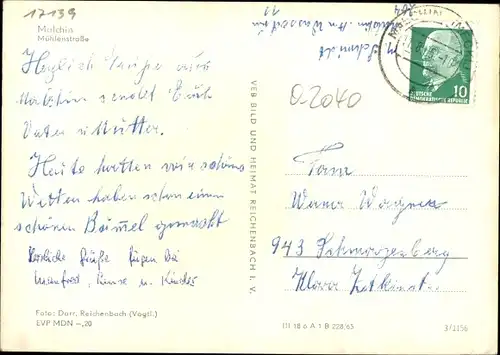 17139
Malchin
Mühlenstraße
Herzliche Grüße aus
Malchin sendet Euch
Vater u Mutter.
Heute hatten wir schönes
Wetter haben schon einen
schönen Bummel gemacht
Herzliche Grüße fügen bei
Manfred, u. Kinder
Foto: Darr, Reichenbach (Vogtl.)
EVP MDN –,20
VEB BILD UND HEIMAT REICHENBACH I. V.
Schmidt
Malchin Am Wasserturm
11
10
DEUTSCHE
DEMOKRATISCHE REPUBLIK
O-2040
Fam
Werner Wagner
943 Schwarzenberg
Klara Zetkinst.
III 18 6 A 1 B 228/65
3/1156